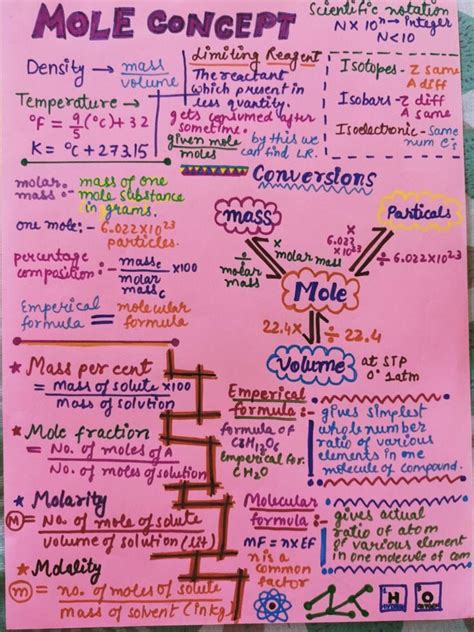 MOLE CONCEPT
Scientific notation
N×10ⁿ → Integer
N<10
Density → mass
volume
Temperature →
°F = 9/5 (°C) + 32
K = °C + 273.15
Limiting Reagent
The reactant
which present in
less quantity.
gets consumed after
sometime.
given mole
moles
by this we
can find L.R.
Isotopes - Z same
A diff
Isobars - Z diff
A same
Isoelectronic - Same
num e⁻s
Conversions
molar mass :- mass of one
mole substance
(in grams.
one mole :- 6.022×10²³
particles.
percentage
composition :- mass
molar
mass
×100
Emperical
formula = molecular
formula
mass
Particals
÷
molar
mass
×
molar mass
×
6.022
×10²³
÷ 6.022×10²³
Mole
22.4×
÷ 22.4
Volume
at STP
0° 1atm
★ Mass per cent
= Mass of solute ×100
Mass of solution
★ Mole fraction
= No. of moles of A
No. of moles of solution
★ Molarity
M = No. of mole of solute
volume of solution (lit)
★ Molality
m = no. of moles of solute
mass of solvent (in kg)
Emperical
formula :-
formula of
C₆H₁₂O₆
emperical for.
CH₂O
gives simplest
whole number
ratio of various
elements in one
molecule of compound.
Molecular
formula :-
MF = n×EF
n is a
common
factor
gives actual
ratio of atom
of various element
in one molecule of com
H
O